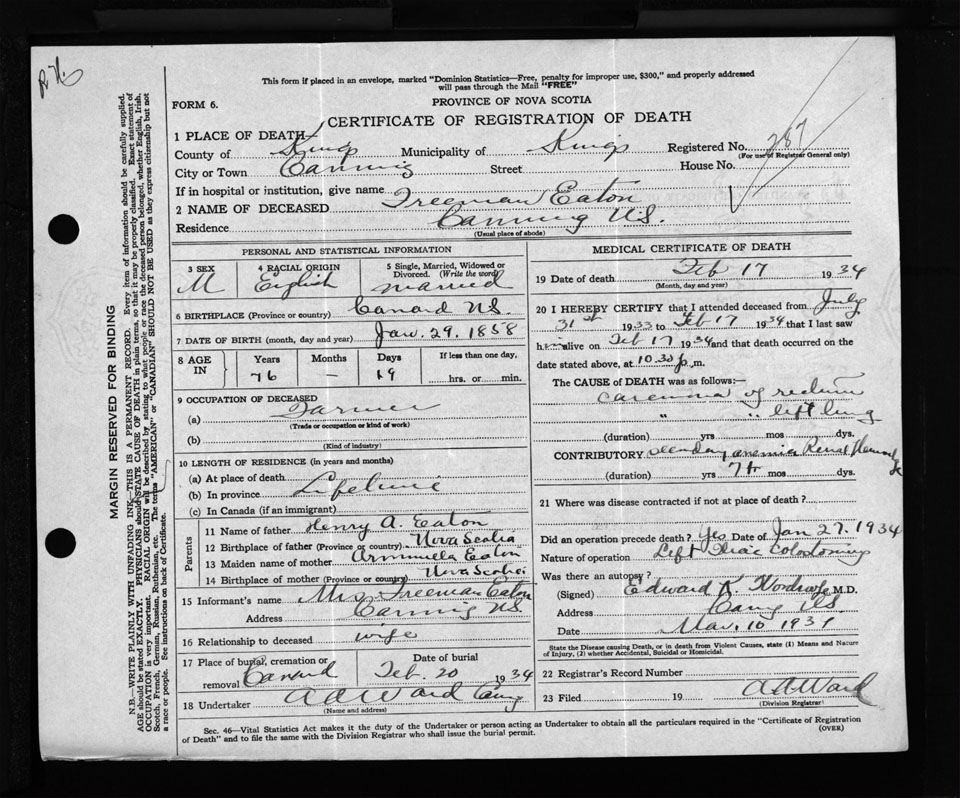 R.N.
This form if placed in an envelope, marked "Dominion Statistics—Free, penalty for improper use, $300," and properly addressed
will pass through the Mail "FREE"
FORM 6.
PROVINCE OF NOVA SCOTIA
CERTIFICATE OF REGISTRATION OF DEATH
1 PLACE OF DEATH—
County of Kings Municipality of Kings Registered No. 287
(For use of Registrar General only)
City or Town Canning Street House No.
If in hospital or institution, give name
2 NAME OF DECEASED Freeman Eaton
Residence Canning N.S.
(Usual place of abode)
PERSONAL AND STATISTICAL INFORMATION
3 SEX M
4 RACIAL ORIGIN English
5 Single, Married, Widowed or Divorced. (Write the word) married
6 BIRTHPLACE (Province or country) Canard N.S.
7 DATE OF BIRTH (month, day and year) Jan. 29. 1858
8 AGE IN Years 76 Months — Days 19 If less than one day, hrs. or min.
9 OCCUPATION OF DECEASED
(a) Farmer
(Trade or occupation or kind of work)
(b)
(Kind of industry)
10 LENGTH OF RESIDENCE (in years and months)
(a) At place of death
(b) In province Lifetime
(c) In Canada (if an immigrant)
Parents
11 Name of father Henry A. Eaton
12 Birthplace of father (Province or country) Nova Scotia
13 Maiden name of mother Armnuela Eaton
14 Birthplace of mother (Province or country) Nova Scotia
15 Informant's name Mrs Freeman Eaton
Address Canning N.S.
16 Relationship to deceased wife
17 Place of burial, cremation or removal Canard Date of burial Feb. 20 1934
18 Undertaker A A Ward Cang
(Name and address)
MEDICAL CERTIFICATE OF DEATH
19 Date of death Feb 17 1934
(Month, day and year)
20 I HEREBY CERTIFY that I attended deceased from July
31st 1933 to Feb 17 1934 that I last saw
him alive on Feb 17 1934 and that death occurred on the
date stated above, at 10.30 p.m.
The CAUSE OF DEATH was as follows:—
carcinoma of rectum
" " left lung
(duration) yrs mos dys.
CONTRIBUTORY secondary anemia Renal
(duration) yrs mos dys.
21 Where was disease contracted if not at place of death?
Did an operation precede death? Yes Date of Jan 27. 1934
Nature of operation Left Iliac Colostomy
Was there an autopsy?
(Signed) Edward K. Woodroofe M.D.
Address Cang N.S.
Date Mar. 10 1934
State the Disease causing Death, or in death from Violent Causes, state (1) Means and Nature
of Injury, (2) whether Accidental, Suicidal or Homicidal.
22 Registrar's Record Number
23 Filed 19 A A Ward
(Division Registrar)
Sec. 46—Vital Statistics Act makes it the duty of the Undertaker or person acting as Undertaker to obtain all the particulars required in the "Certificate of Registration
of Death" and to file the same with the Division Registrar who shall issue the burial permit.
(OVER)
MARGIN RESERVED FOR BINDING
N.B.—WRITE PLAINLY WITH UNFADING INK—THIS IS A PERMANENT RECORD. Every item of information should be carefully supplied.
AGE should be stated EXACTLY. PHYSICIANS should STATE CAUSE OF DEATH in plain terms, so that it may be properly classified. Exact statement of
OCCUPATION is very important. RACIAL ORIGIN will be described by stating to what people or race the deceased person belonged, whether English, Irish,
Scotch, French, German, Russian, Ruthenian, etc. The terms "AMERICAN" or "CANADIAN" SHOULD NOT BE USED as they express citizenship but not
a race or people. See instructions on back of Certificate.